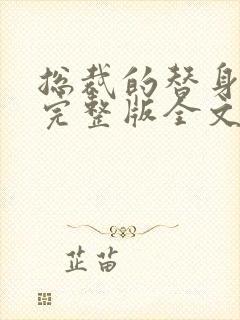 总裁的替身
完整版全文
芷苗